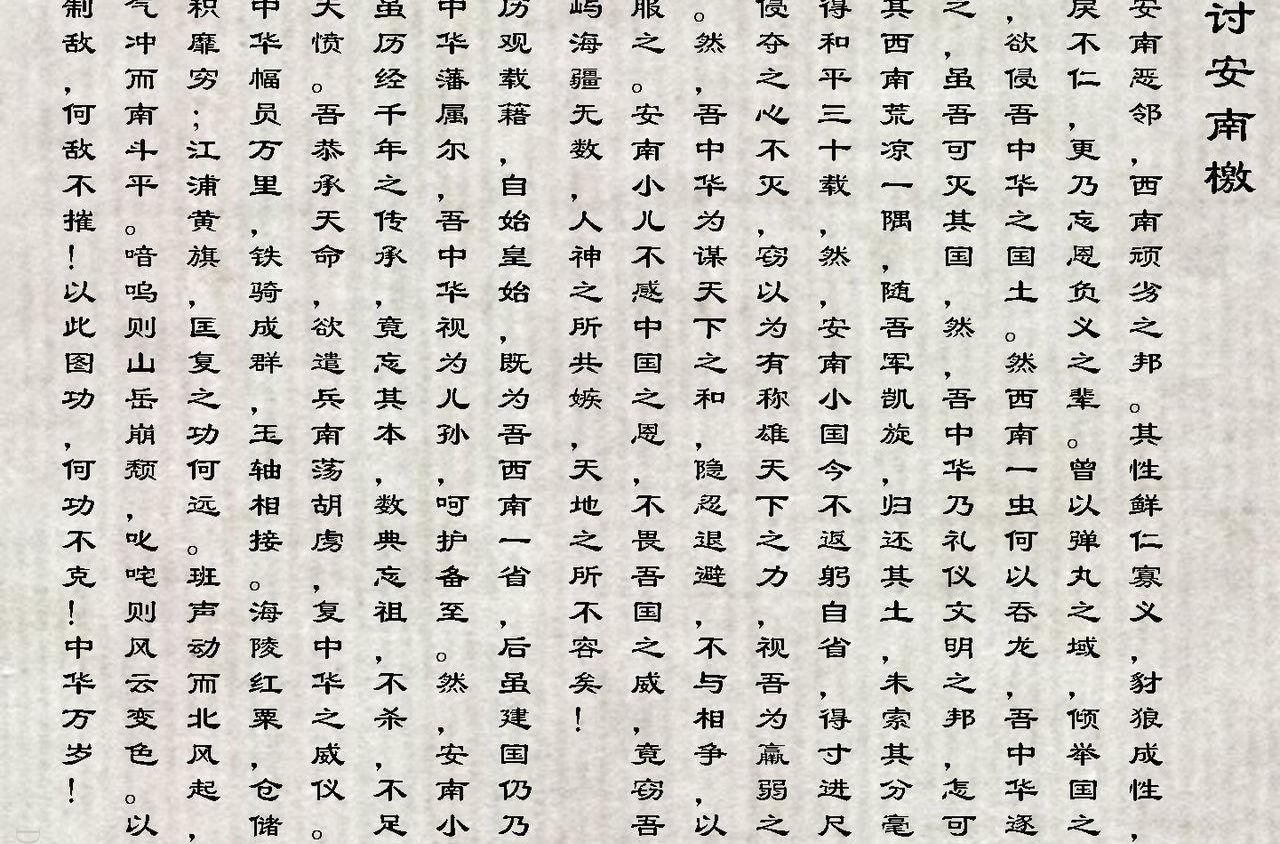 讨安南檄
安南恶邻，西南顽劣之邦。其性鲜仁寡义，豺狼成性，
戾不仁，更乃忘恩负义之辈。曾以弹丸之域，倾举国之
，欲侵吾中华之国土。然西南一虫何以吞龙，吾中华逐
之，虽吾可灭其国，然，吾中华乃礼仪文明之邦，怎可
其西南荒凉一隅，随吾军凯旋，归还其土，未索其分毫
得和平三十载，然，安南小国今不返躬自省，得寸进尺
侵夺之心不灭，窃以为有称雄天下之力，视吾为羸弱之
。然，吾中华为谋天下之和，隐忍退避，不与相争，以
服之。安南小儿不感中国之恩，不畏吾国之威，竟窃吾
屿海疆无数，人神之所共嫉，天地之所不容矣！
历观载籍，自始皇始，既为吾西南一省，后虽建国仍乃
中华藩属尔，吾中华视为儿孙，呵护备至。然，安南小
虽历经千年之传承，竟忘其本，数典忘祖，不杀，不足
天愤。吾恭承天命，欲遣兵南荡胡虏，复中华之威仪。
中华幅员万里，铁骑成群，玉轴相接。海陵红粟，仓储
积靡穷；江浦黄旗，匡复之功何远。班声动而北风起，
气冲而南斗平。喑呜则山岳崩颓，叱咤则风云变色。以
制敌，何敌不摧！以此图功，何功不克！中华万岁！